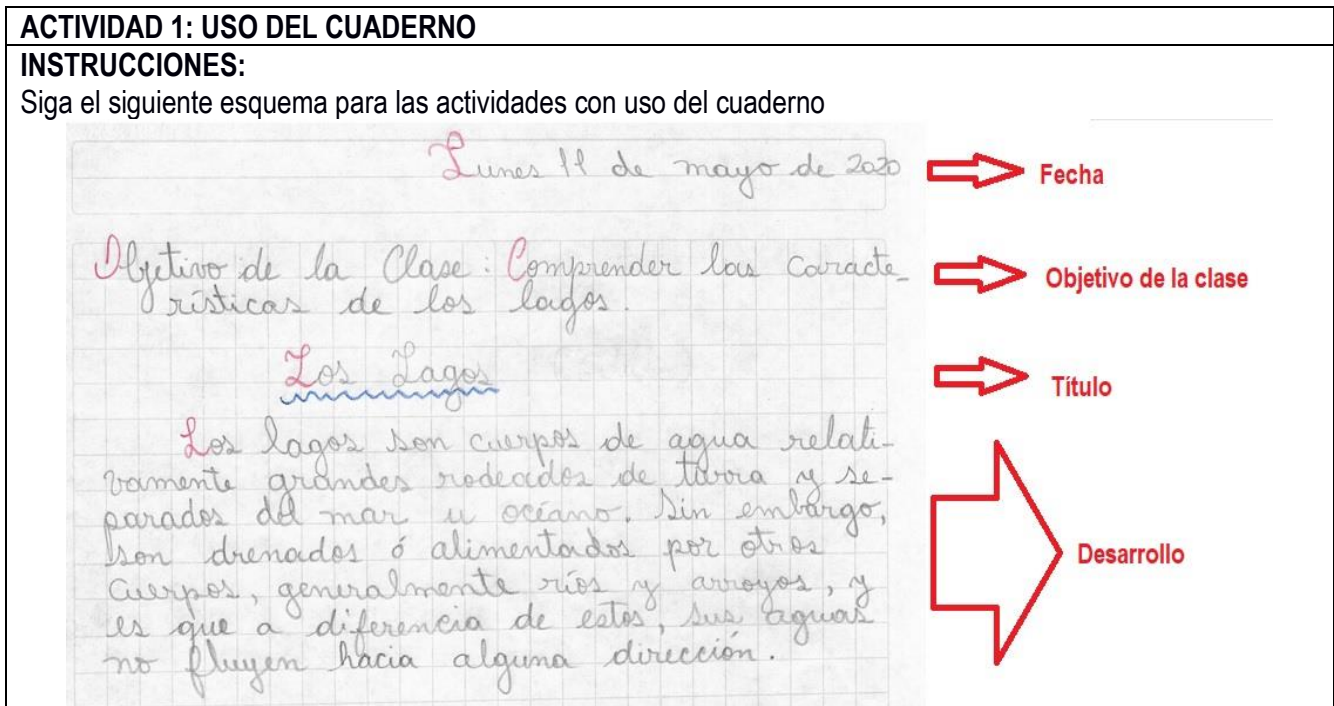 ACTIVIDAD 1: USO DEL CUADERNO
INSTRUCCIONES:
Siga el siguiente esquema para las actividades con uso del cuaderno
Lunes 11 de mayo de 2020
Fecha
Objetivo de la Clase: Comprender las caracte-
rísticas de los lagos.
Objetivo de la clase
Los Lagos
Título
Los lagos son cuerpos de agua relati-
vamente grandes rodeados de tierra y se-
parados del mar u océano. Sin embargo,
son drenados ó alimentados por otros
cuerpos, generalmente ríos y arroyos, y
es que a diferencia de estos, sus aguas
no fluyen hacia alguna dirección.
Desarrollo